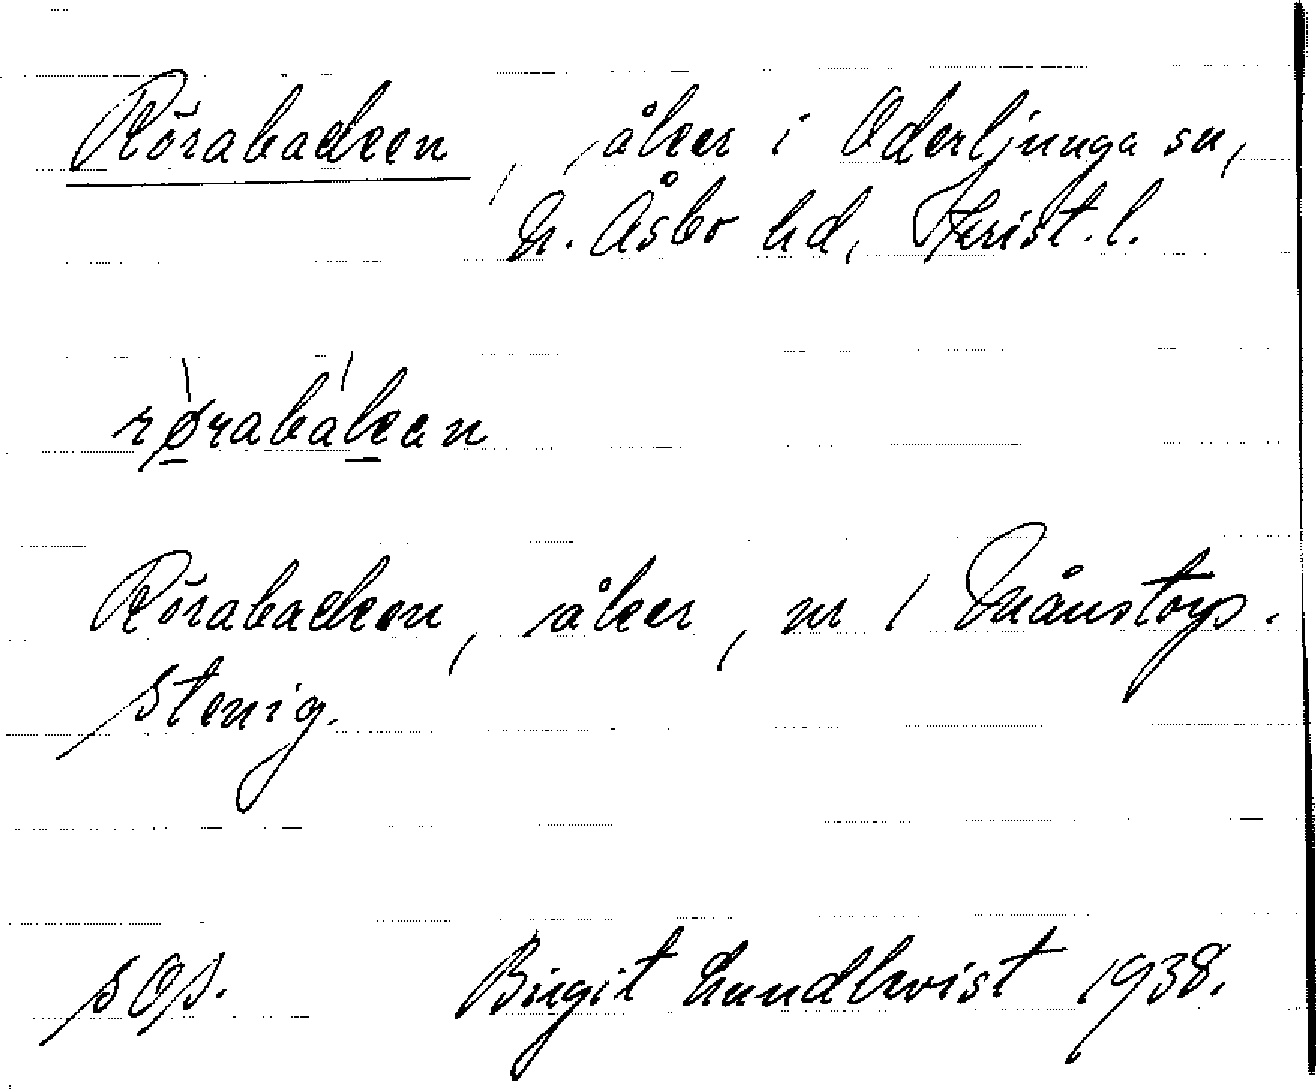 Rörabacken, åker i Oderljunga sn,
N. Åsbo hd, Krist. l.
rørabákan
Rörabacken, åker, nr 1 Månstorp.
Stenig.
SOS. Birgit Lundkvist 1938.